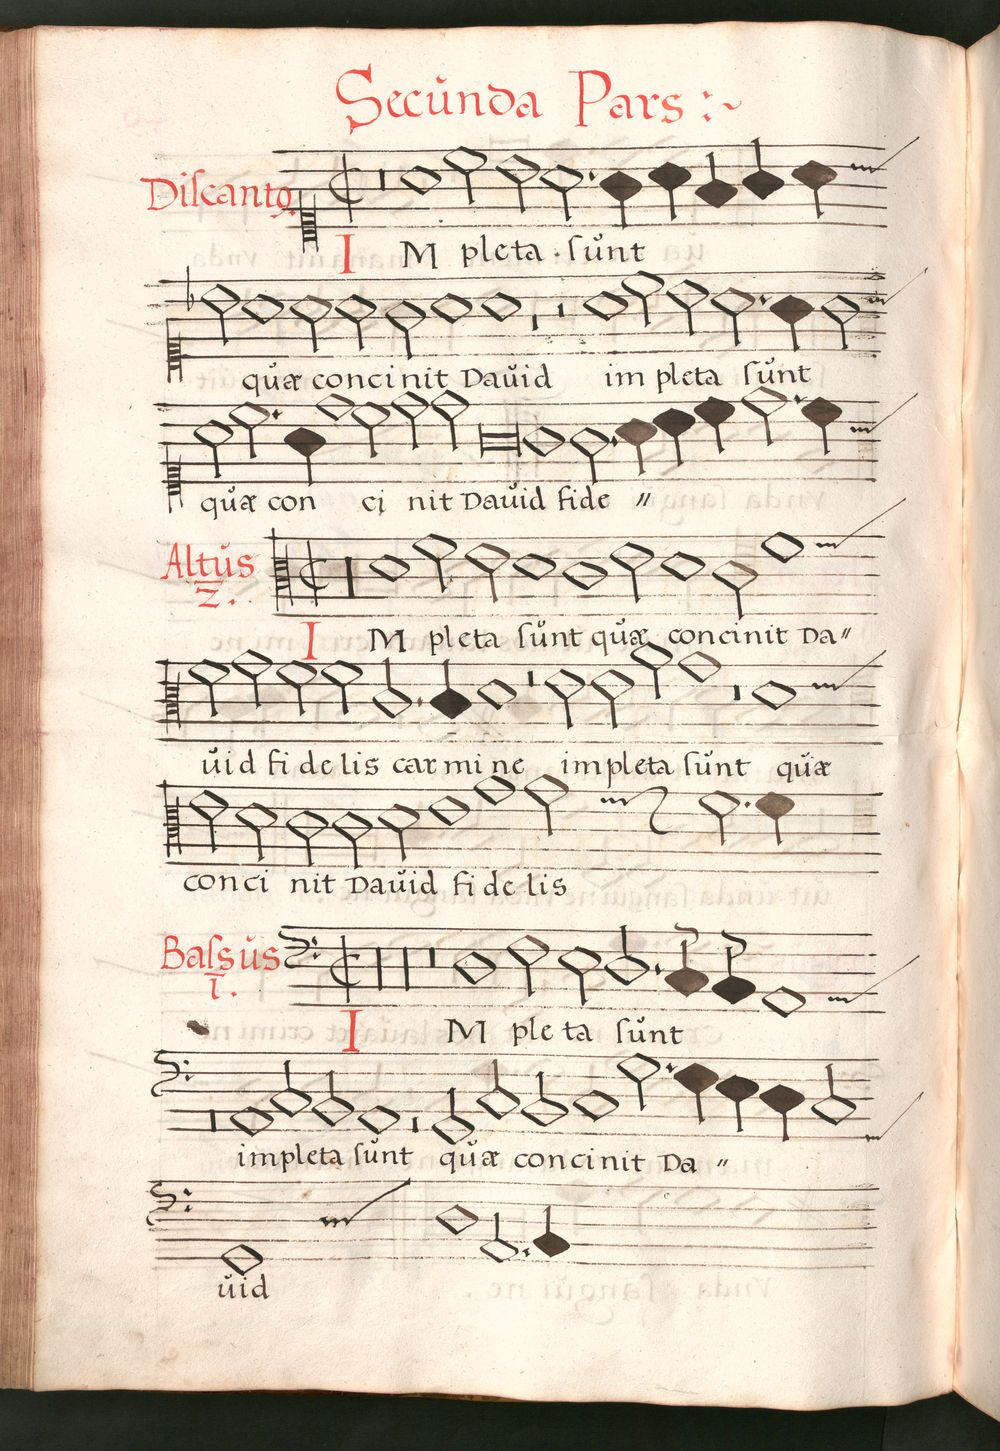 Secŭnda Pars :~
Diſcantꝯ.
I M pleta . ſŭnt
quæ concinit Daŭid im pleta ſŭnt
quæ con ci nit Daŭid fide "
Altŭs
2.
I M pleta ſŭnt quæ concinit Da"
ŭid fi de lis car mi ne impleta ſŭnt quæ
conci nit Daŭid fi de lis
Baſsŭs
1.
I M ple ta ſŭnt
impleta ſŭnt quæ concinit Da "
ŭid